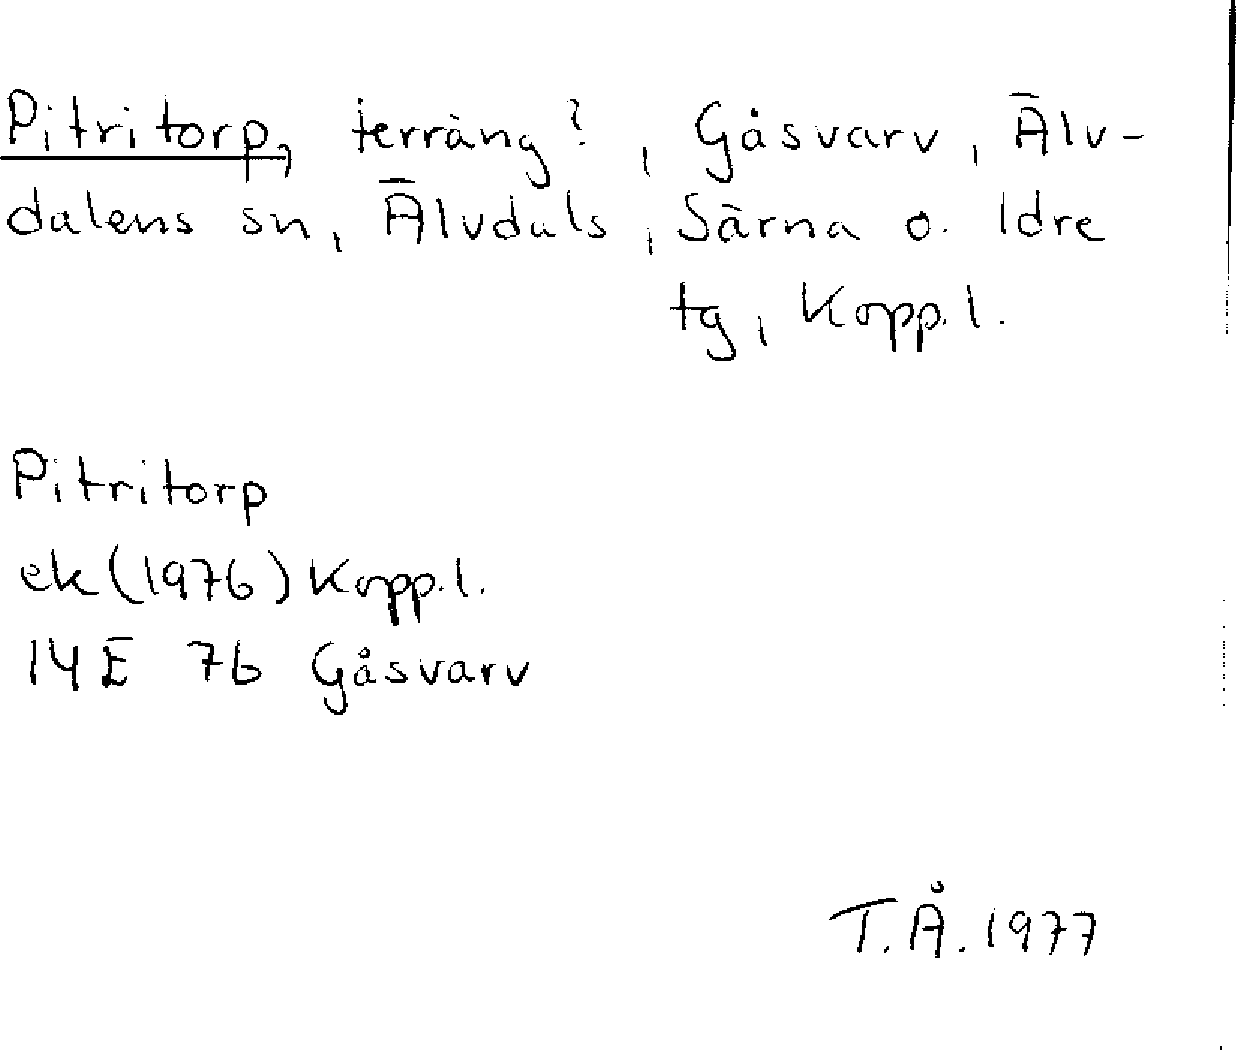 Pitritorp, terräng?, Gåsvarv, Älv-
dalens sn, Älvdals, Särna o. Idre
tg, Kopp.l.
Pitritorp
ek (1976) Kopp.l.
14E 7b Gåsvarv
T.Å. 1977